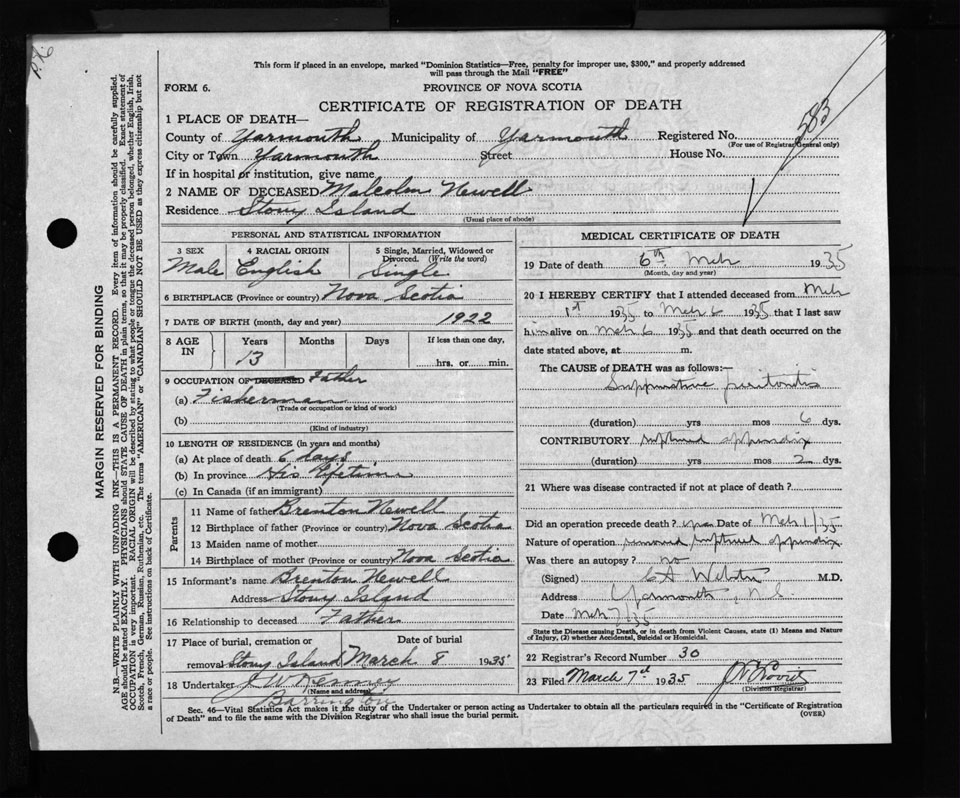 P.K.6
This form if placed in an envelope, marked "Dominion Statistics—Free, penalty for improper use, $300," and properly addressed
will pass through the Mail "FREE"
FORM 6.
PROVINCE OF NOVA SCOTIA
CERTIFICATE OF REGISTRATION OF DEATH
1 PLACE OF DEATH—
County of Yarmouth Municipality of Yarmouth Registered No. 583
(For use of Registrar General only)
City or Town Yarmouth Street House No.
If in hospital or institution, give name
2 NAME OF DECEASED Malcolm Newell
Residence Stony Island
(Usual place of abode)
PERSONAL AND STATISTICAL INFORMATION
3 SEX 4 RACIAL ORIGIN 5 Single, Married, Widowed or
Divorced. (Write the word)
Male English Single
6 BIRTHPLACE (Province or country) Nova Scotia
7 DATE OF BIRTH (month, day and year) 1922
8 AGE IN Years Months Days If less than one day,
13 hrs. or min.
9 OCCUPATION OF DECEASED Father
(a) Fisherman
(Trade or occupation or kind of work)
(b)
(Kind of industry)
10 LENGTH OF RESIDENCE (in years and months)
(a) At place of death 6 days
(b) In province His Lifetime
(c) In Canada (if an immigrant)
Parents
11 Name of father Brenton Newell
12 Birthplace of father (Province or country) Nova Scotia
13 Maiden name of mother
14 Birthplace of mother (Province or country) Nova Scotia
15 Informant's name Brenton Newell
Address Stony Island
16 Relationship to deceased Father
17 Place of burial, cremation or Date of burial
removal Stony Island March 8 1935
18 Undertaker J W Kenney
(Name and address)
Barrington
MEDICAL CERTIFICATE OF DEATH
19 Date of death 6th Mch 1935
(Month, day and year)
20 I HEREBY CERTIFY that I attended deceased from Mch
1st 1935 to Mch 6 1935 that I last saw
him alive on Mch 6 1935 and that death occurred on the
date stated above, at m.
The CAUSE of DEATH was as follows:—
Suppurative peritonitis
(duration) yrs mos 6 dys.
CONTRIBUTORY ruptured appendix
(duration) yrs mos 2 dys.
21 Where was disease contracted if not at place of death?
Did an operation precede death? yes Date of Mch 1/35
Nature of operation removed ruptured appendix
Was there an autopsy? no
(Signed) C A Webster M.D.
Address Yarmouth, N.S.
Date Mch 7/35
State the Disease causing Death, or in death from Violent Causes, state (1) Means and Nature
of Injury, (2) whether Accidental, Suicidal or Homicidal.
22 Registrar's Record Number 30
23 Filed March 7th 1935
(Division Registrar)
Sec. 46—Vital Statistics Act makes it the duty of the Undertaker or person acting as Undertaker to obtain all the particulars required in the "Certificate of Registration
of Death" and to file the same with the Division Registrar who shall issue the burial permit.
(OVER)
MARGIN RESERVED FOR BINDING
N.B.—WRITE PLAINLY WITH UNFADING INK—THIS IS A PERMANENT RECORD. Every item of information should be carefully supplied.
AGE should be stated EXACTLY. PHYSICIANS should STATE CAUSE OF DEATH in plain terms, so that it may be properly classified. Exact statement of
OCCUPATION is very important. RACIAL ORIGIN will be described by stating to what people or tongue the deceased person belonged, whether English, Irish,
Scotch, French, German, Russian, Ruthenian, etc. The terms "AMERICAN" or "CANADIAN" SHOULD NOT BE USED as they express citizenship but not
a race or people. See instructions on back of Certificate.